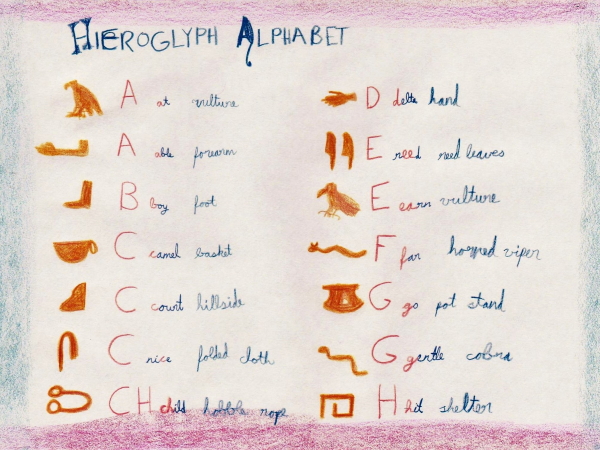 HIEROGLYPH ALPHABET
A at vulture
A able forearm
B boy foot
C camel basket
C court hillside
C nice folded cloth
CH child hobble rope
D delta hand
E reed reed leaves
E earn vulture
F far horned viper
G go pot stand
G gentle cobra
H hit shelter